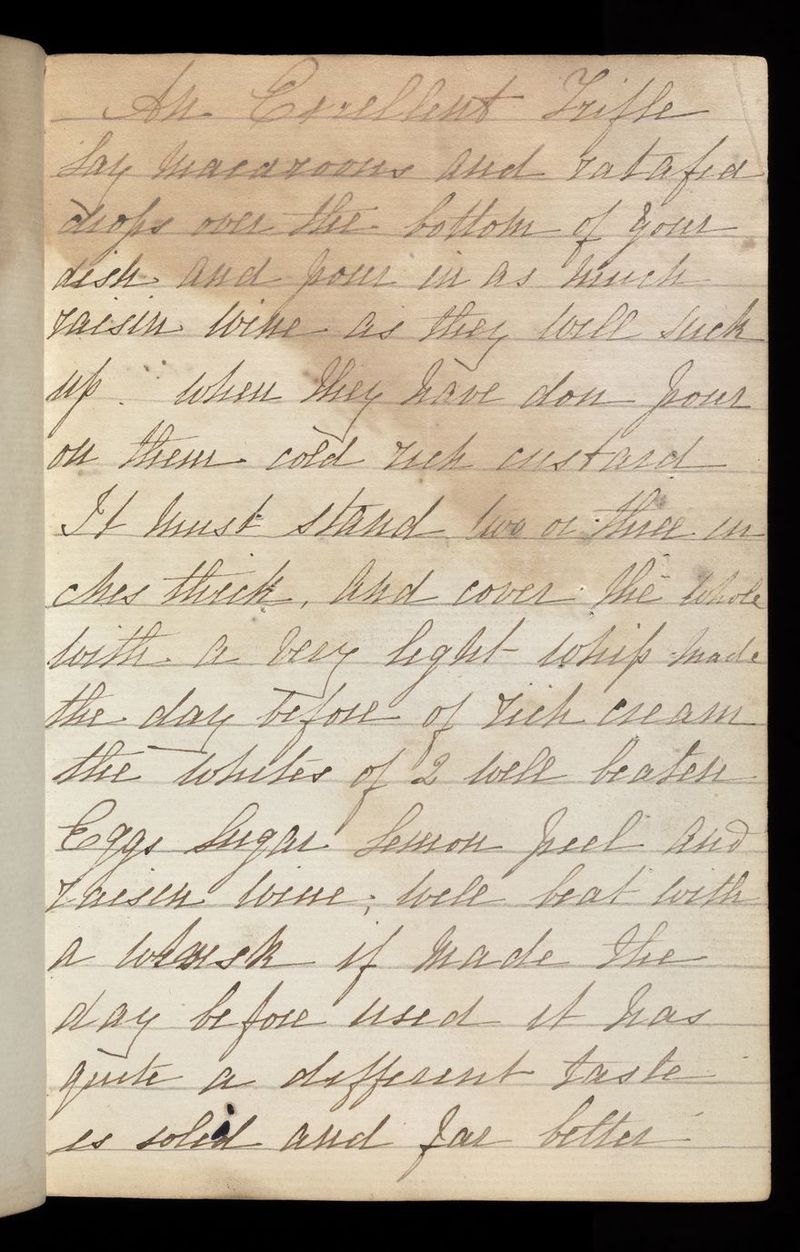 An Excellent Trifle
Lay Macaroons and ratafia
drops over the bottom of your
dish and pour in as much
raisin wine as they will suck
up. when they have don pour
on them cold rich custard
It must stand two or three in
ches thick, and cover the whole
with a very light whip made
the day before of rich cream
the whites of 2 well beaten
Eggs Sugar Lemon peel and
raisin wine, well beat with
a whisk if made the
day before used it has
quite a different taste
is solid and far better